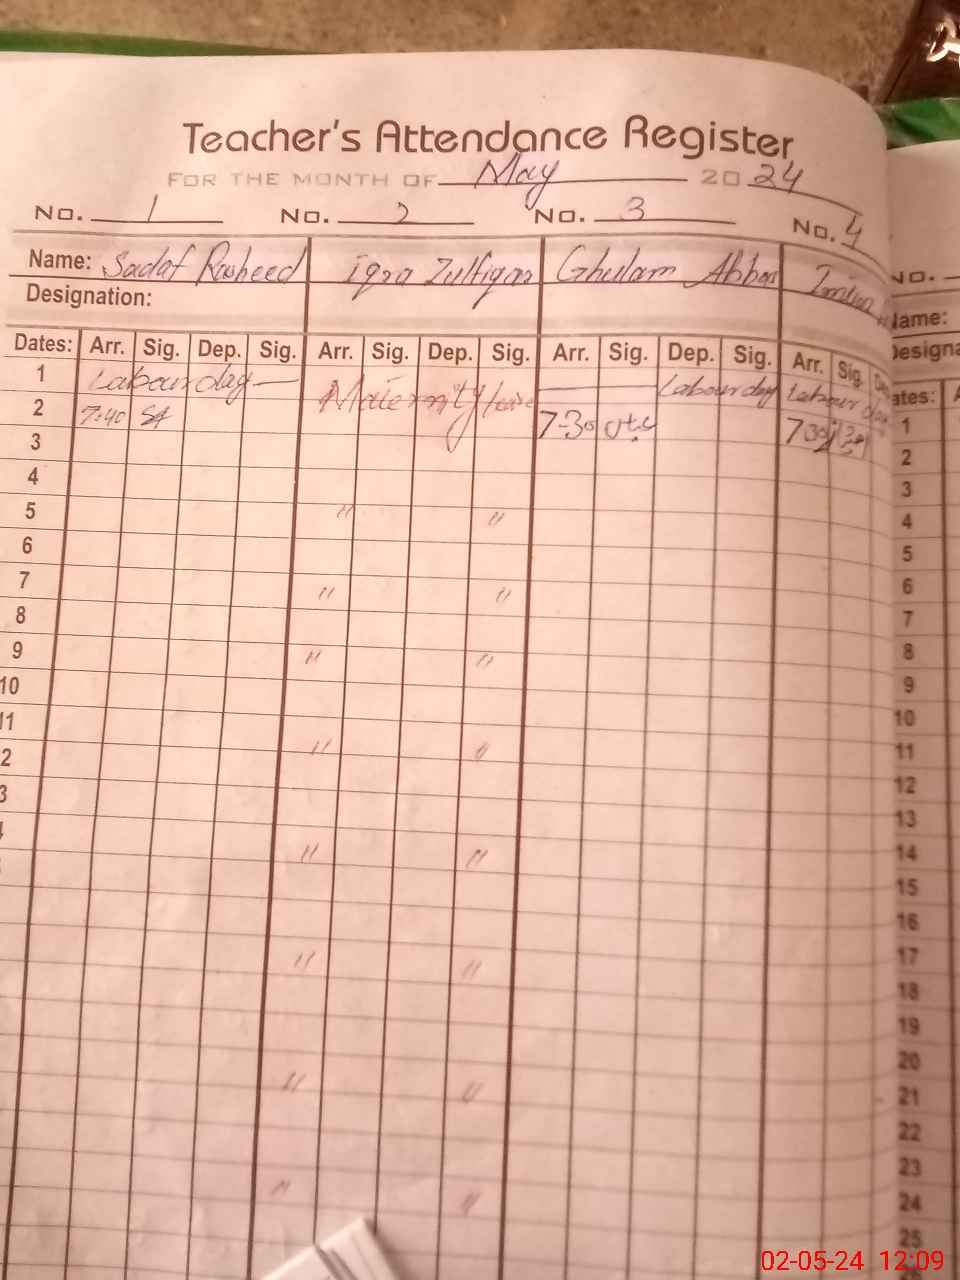 Teacher's Attendance Register
FOR THE MONTH OF May 2024
No. 1 No. 2 No. 3 No. 4
Name: Sadaf Rasheed Iqra Zulfiqar Ghulam Abbas
Designation:
Dates: Arr. Sig. Dep. Sig. Arr. Sig. Dep. Sig. Arr. Sig. Dep. Sig. Arr. Sig.
1 Labour day Maternity leave Labour day Labour day
2 7:40 7-30 730
3
4
5 " "
6
7 " "
8
9 " "
10
11
2 " "
3
" "
" "
" "
" "
No.
Name:
ates:
1
2
3
4
5
6
7
8
9
10
11
12
13
14
15
16
17
18
19
20
21
22
23
24
25
02-05-24 12:09